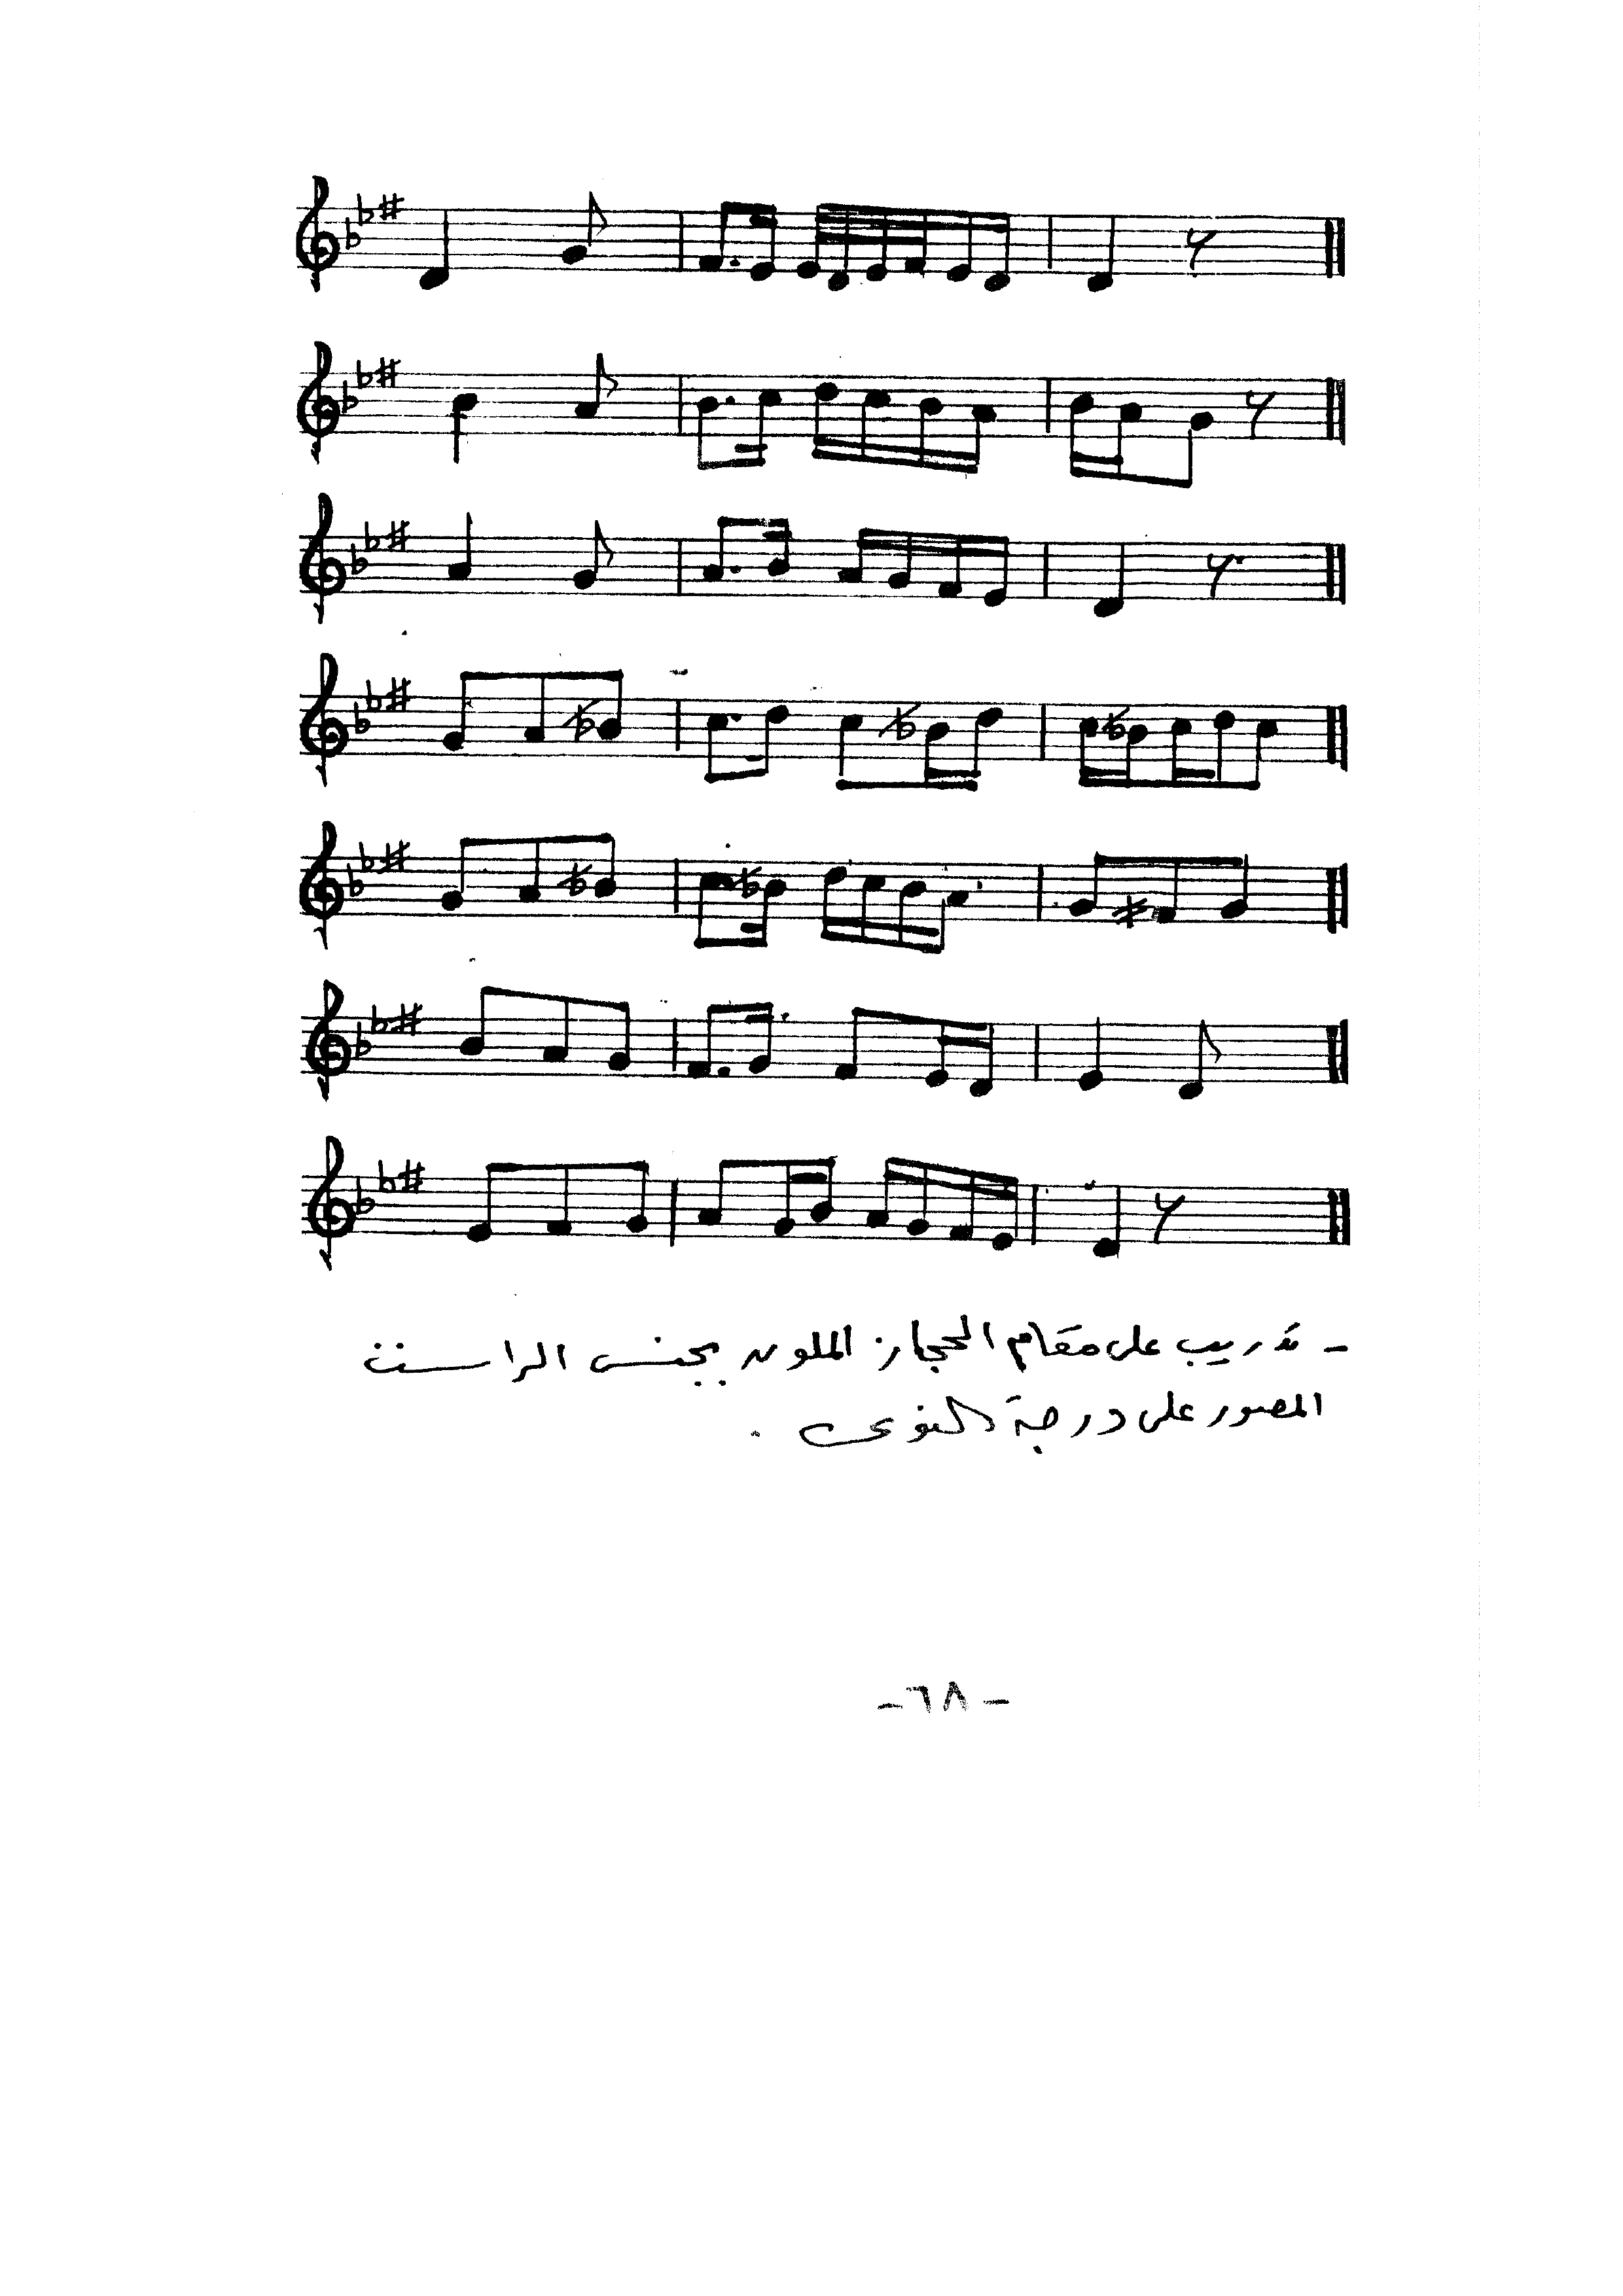 - تدريب على مقام الحجاز الملون بجنس الراست
المصور على درجة النوى .
- ٦٨ -